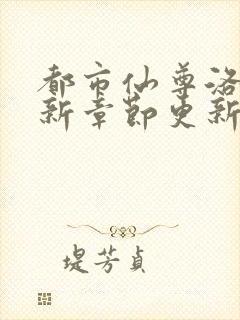 都市仙尊洛
新章节更新
堤芳貞